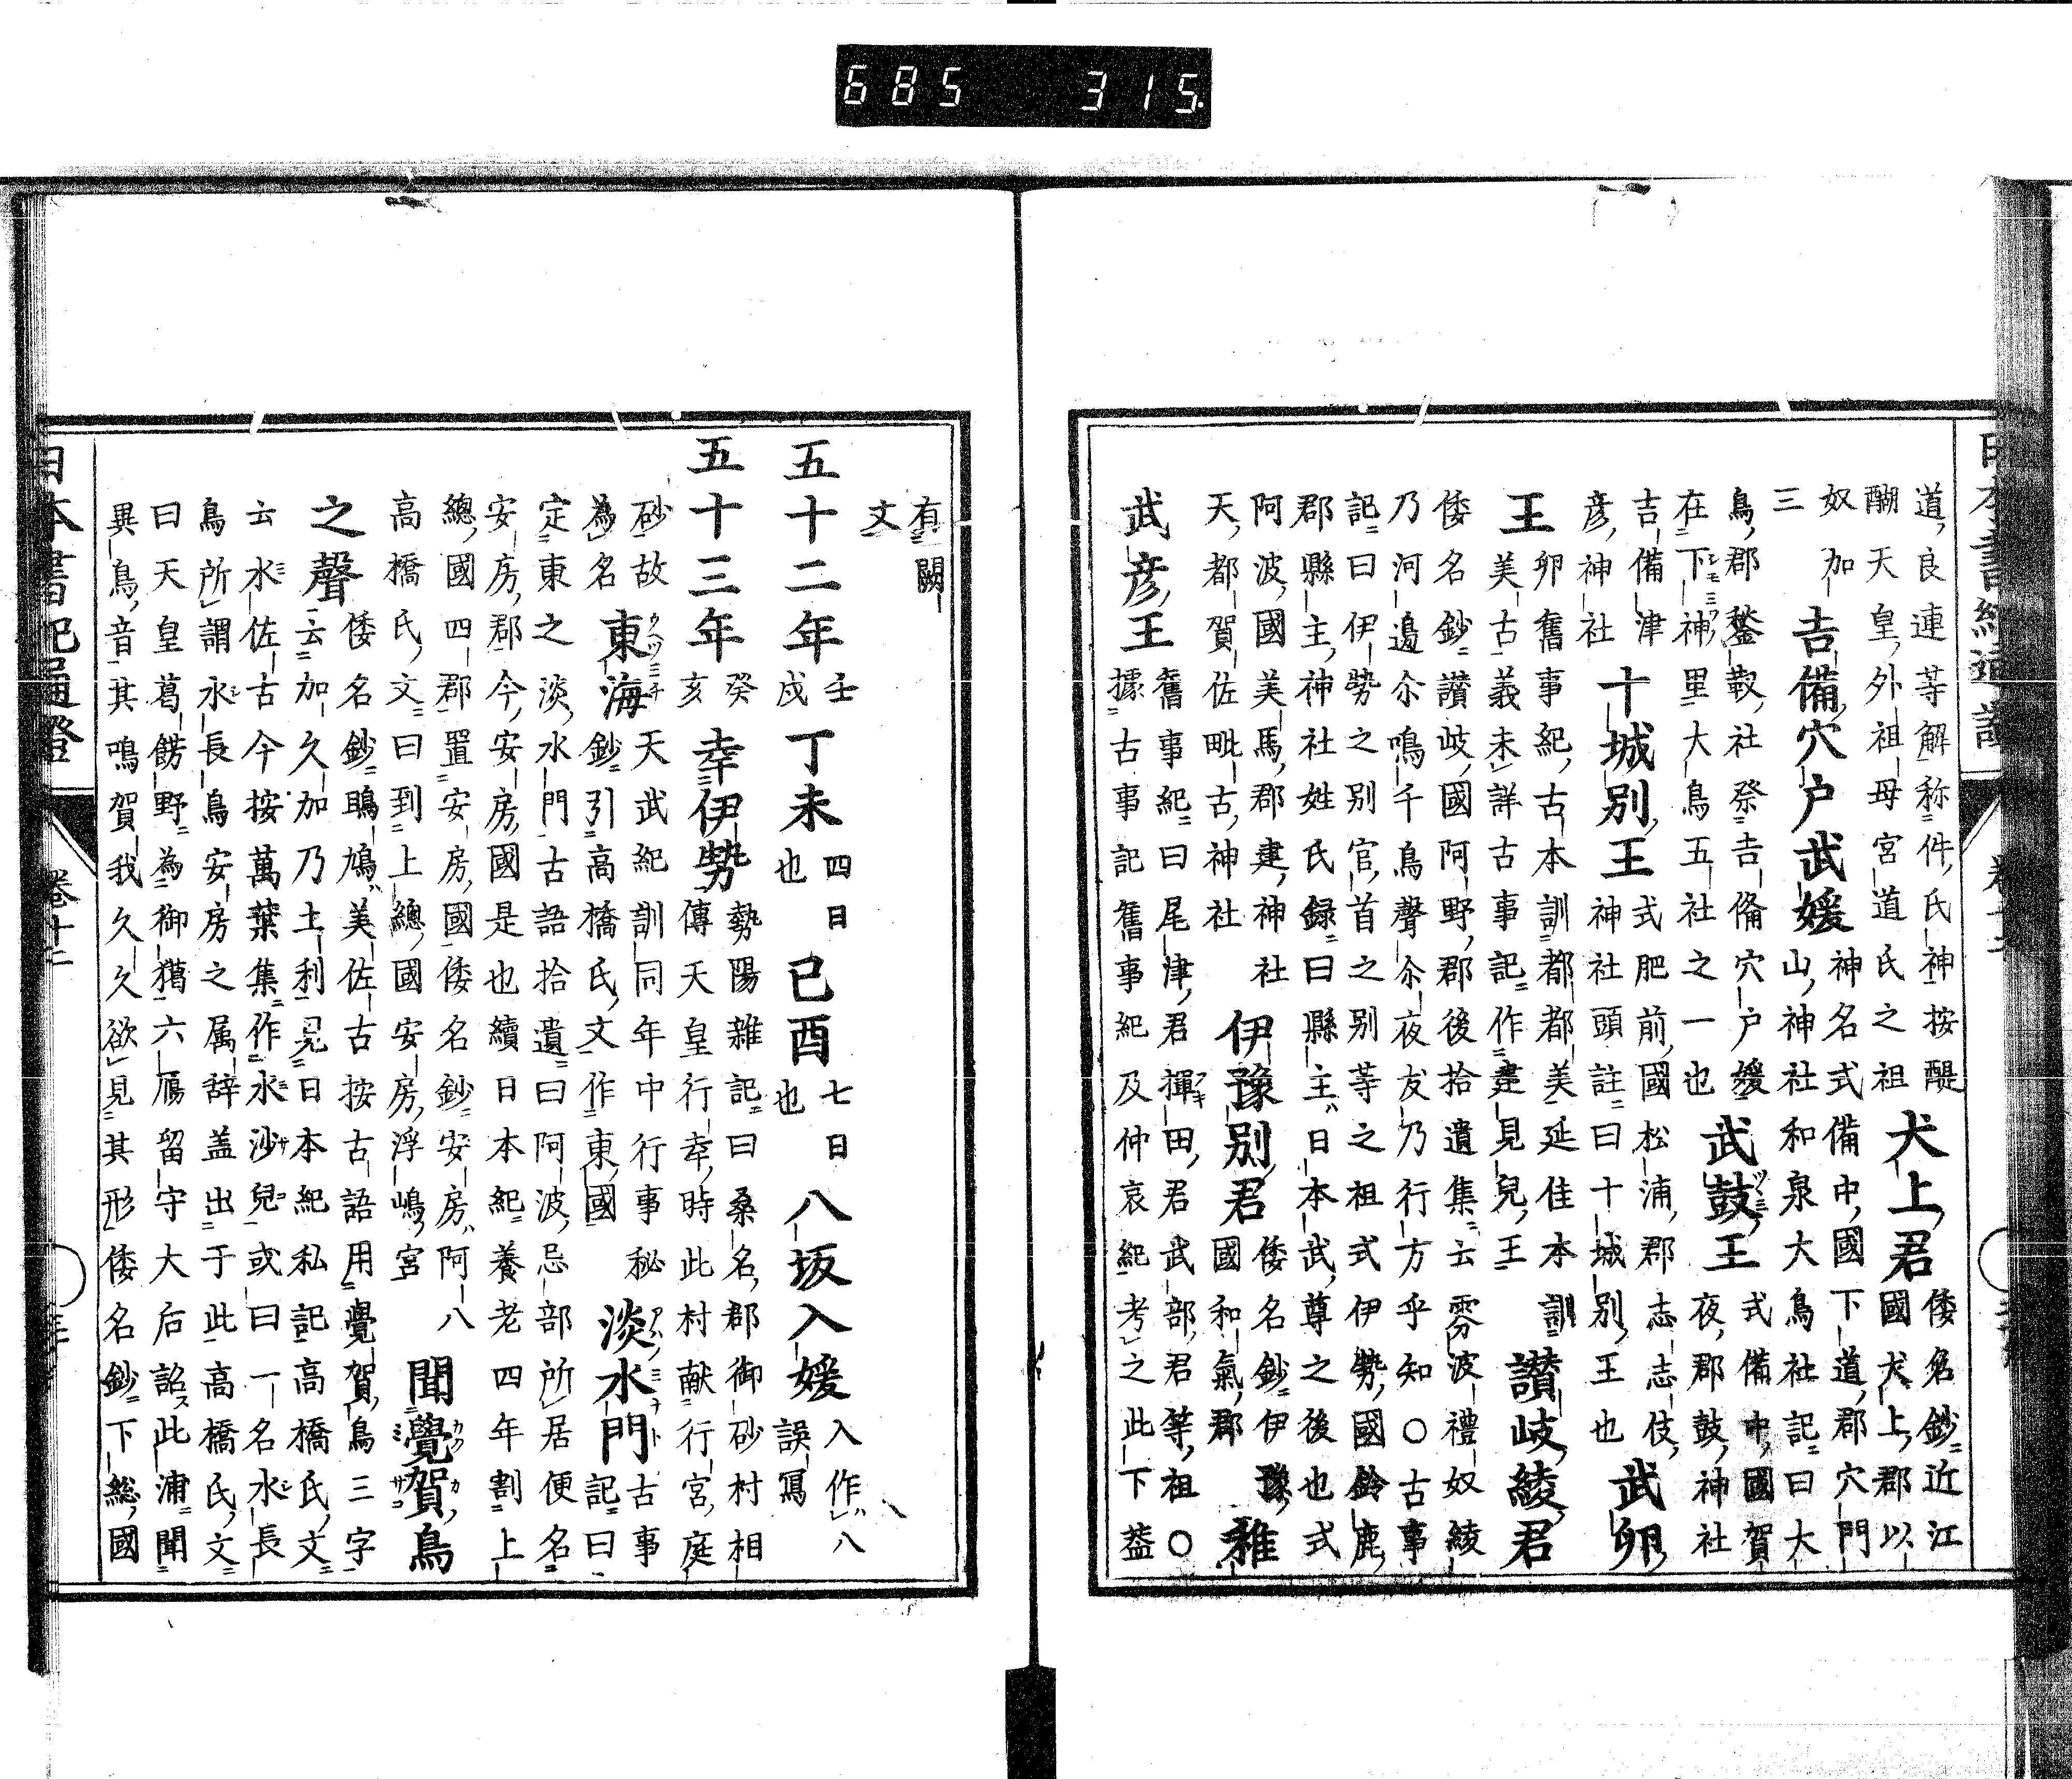 685 315
道良連等解称件氏神按醍
醐天皇外祖母宮道氏之祖 犬上君 倭名鈔近江
國犬上郡以
奴加
三 吉備穴戸武媛 神名式備中國下道郡穴門
山神社和泉大鳥社記曰大
鳥郡鍫靫社祭吉備穴戸媛
在下神里大鳥五社之一也 武鼓王 式備中國賀
夜郡鼓神社
吉備津
彦神社 十城別王 式肥前國松浦郡志志伎
神社社頭註曰十城別王也 武卵
王 卵舊事紀古本訓都都美延佳本訓
美古義未詳古事記作建見兒王 讃岐綾君
倭名鈔讃岐國阿野郡後拾遺集云霧波禮奴綾
乃河邊尒鳴千鳥聲尒夜友乃行方乎知〇古事
記曰伊勢之別官首之別等之祖式伊勢國鈴鹿
郡縣主神社姓氏録曰縣主日本武尊之後也式
阿波國美馬郡建神社
天都賀佐毗古神社 伊豫別君 倭名鈔伊豫
國和氣郡 稚
武彦王 舊事紀曰尾津君揮田君武部君等祖〇
據古事記舊事紀及仲哀紀考之此下葢
日本書紀通證 卷十二
有闕
文
五十二年 壬
戌 丁未 四日
也 已酉 七日
也 八坂入媛 入作八
誤冩
五十三年 癸
亥 幸伊勢 勢陽雜記曰桑名郡御砂村相
傳天皇行幸時此村献行宮庭
砂故
為名 東海 天武紀訓同年中行事秘
鈔引高橋氏文作東國 淡水門 古事
記曰
定東之淡水門古語拾遺曰阿波忌部所居便名
安房郡今安房國是也續日本紀養老四年割上
總國四郡置安房國倭名鈔安房阿八
高橋氏文曰到上總國安房浮嶋宮 聞覺賀鳥
之聲 倭名鈔鵙鳩美佐古按古語用覺賀鳥三字
云加久加乃土利見日本紀私記高橋氏文
云水佐古今按萬葉集作水沙兒或曰一名水長
鳥所謂水長鳥安房之属辞盖出于此高橋氏文
曰天皇葛餝野為御獦六鴈留守大后詔此浦聞
異鳥音其鳴賀我久久欲見其形倭名鈔下総國
日本書紀通證 卷十二